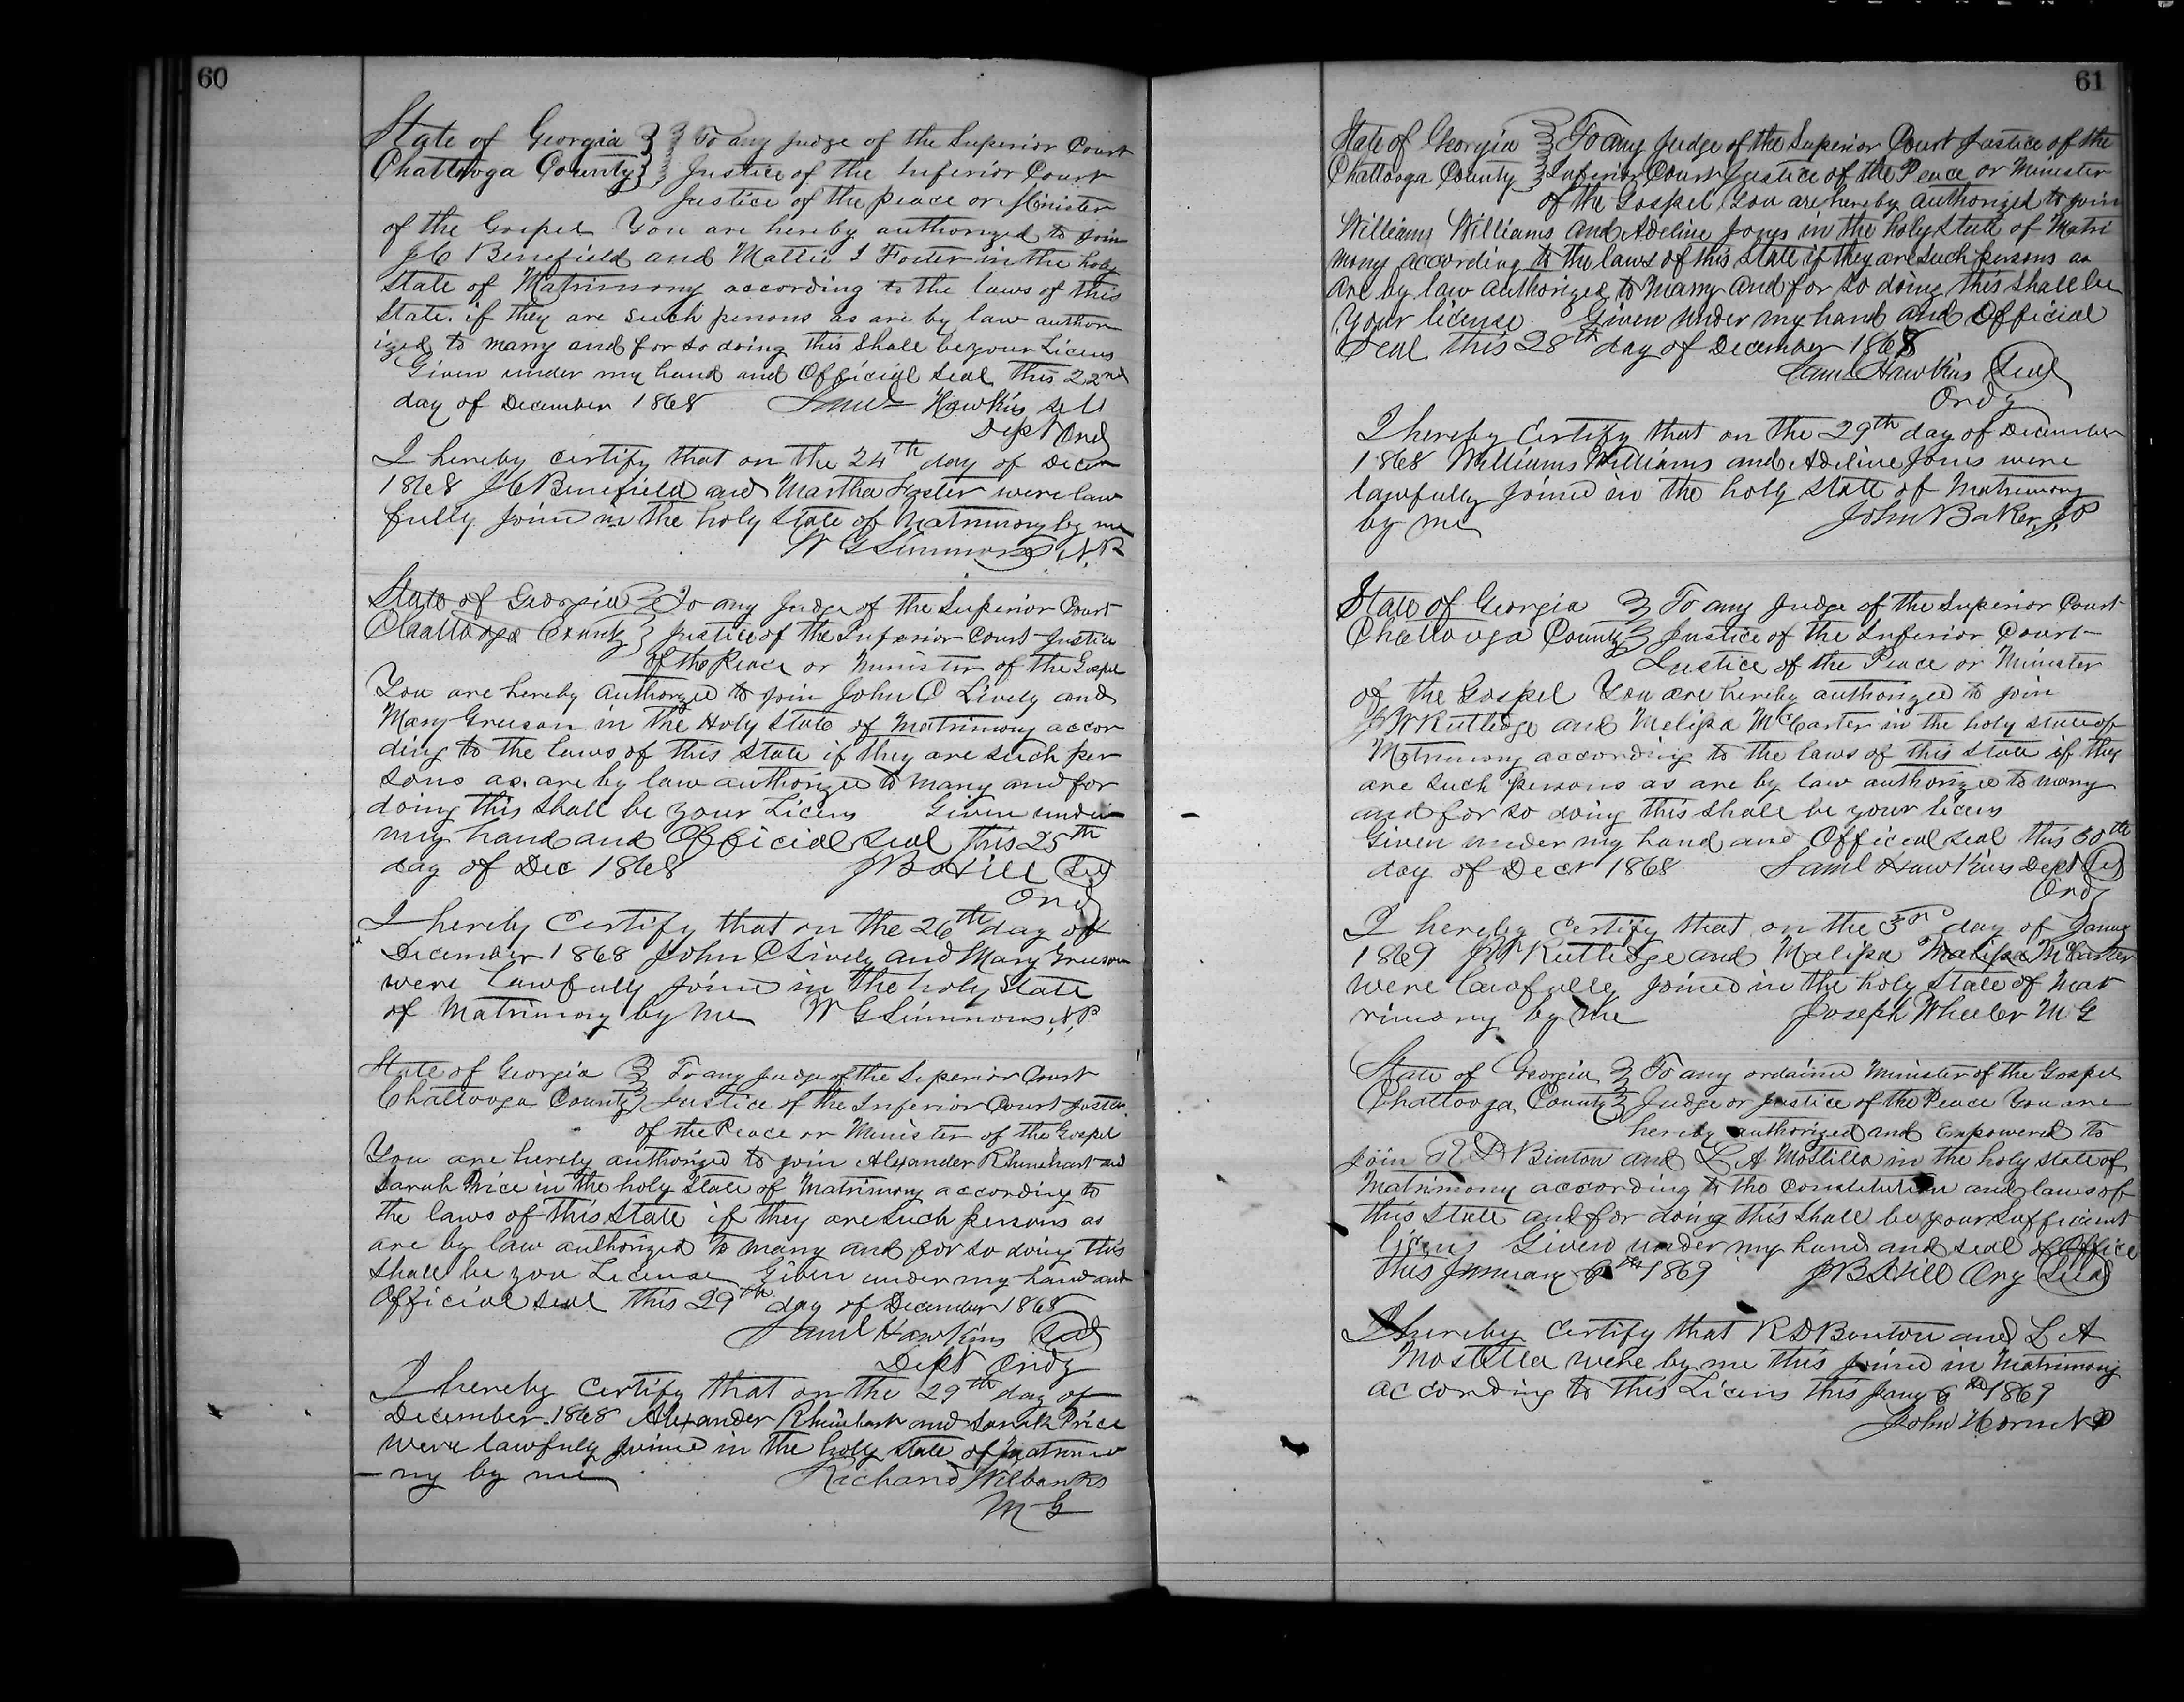 60
State of Georgia } To any Judge of the Superior Court
Chattooga County } Justice of the Inferior Court
Justice of the peace or Minister
of the Gospel You are hereby authorized to join
J C Benefield and Mattie I Foster in the holy
State of Matrimony according to the laws of this
State. if they are such persons as are by law author
ized to marry and for so doing this shall be your Licens
Given under my hand and Official seal this 22nd
day of December 1868 Saml Hawkins
Dept Ord
I hereby certify that on the 24th day of Decm
1868 J C Benefield and Martha Foster were law
fully joind in the holy State of Matrimony by me
W G Simmons N.P.
State of Georgia } To any Judge of the Superior Court
Chattooga County } Justice of the Inferior Court Justice
of the Peace or Minister of the Gospel
You are hereby authorized to join John C Lively and
Mary Greeson in the Holy State of Matrimony accor
ding to the laws of this State if they are such per
sons as are by law authorized to marry and for
doing this shall be your Licens Given under
my hand and Official Seal this 25th
day of Dec 1868 J B Hill Seal
Ord
I hereby Certify that on the 26th day of
December 1868 John C Lively and Mary Greeson
were lawfully joined in the holy State
of Matrimony by me W G Simmons N.P
State of Georgia } To any Judge of the Superior Court
Chattooga County } Justice of the Inferior Court Justice
of the Peace or Minister of the Gospel
You are hereby authorized to join Alexander Rhinehart and
Sarah Price in the holy State of Matrimony according to
the laws of this State if they are such persons as
are by law authorized to marry and for so doing this
shall be you License Given under my hand and
Official seal this 29th day of December 1868
Saml Hawkins Seal
Dept Ordy
I hereby Certify that on the 29th day of
December 1868 Alexander Rhinehart and Sarah Price
were lawfuly joined in the holy state of Matrimo
-ny by me Richard Wilbanks
M G
61
State of Georgia } To any Judge of the Superior Court Justice of the
Chattooga County } Inferior Court Justice of the Peace or Minister
of the Gospel You are hereby authorized to join
Williams Williams and Adeline Jones in the holy State of Matri
mony according to the laws of this State if they are such persons as
are by law authorized to marry and for so doing this shall be
your license Given under my hand and Official
Seal this 28th day of December 1868
Saml Hawkins Seal
Ordy
I hereby Certify that on the 29th day of December
1868 Williams Williams and Adeline Jones were
lawfully joined in the holy State of Matrimony
by me John Baker J P
State of Georgia } To any Judge of the Superior Court
Chattooga County } Justice of the Inferior Court
Justice of the Peace or Minister
of the Gospel You are hereby authorized to join
J W Rutledge and Melissa McCarter in the holy state of
Matrimony according to the laws of this State if they
are such persons as are by law authorized to marry
and for so doing this shall be your licens
Given under my hand and Official seal this 30th
day of Decr 1868 Saml Hawkins Dept Seal
Ordy
I hereby Certify that on the 3rd day of Januy
1869 J W Rutledge and Malissa Malissa McCarter
were lawfully joined in the holy State of Mat
rimony by me Joseph Wheeler M G
State of Georgia } To any ordained Minister of the Gospel
Chattooga County } Judge or Justice of the Peace You are
hereby authorized and Empowered to
join R D Binton and L A Mostilla in the holy state of
Matrimony according to the Constitution and laws of
this State and for doing this shall be your sufficient
licens Given under my hand and seal of Office
this January 6th 1869 J B Hill Ory Seal
I hereby Certify that R D Benton and L A
Mostella were by me this joined in Matrimony
according to this Licens this Jany 6th 1869
John Horn N P